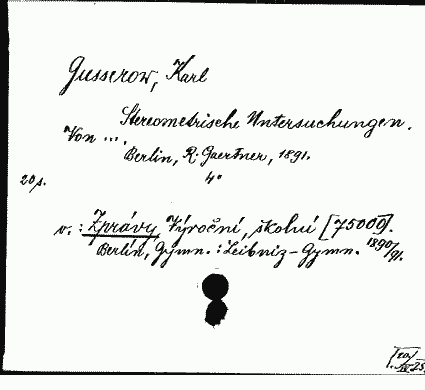 Gusserow, Karl
Stereometrische Untersuchungen.
Von ....
Berlin, R. Gaertner, 1891.
4°
20 s.
v.: Zprávy Výroční, školní [75000].
Berlin, Gymn.: Leibniz-Gymn. 1890/91.